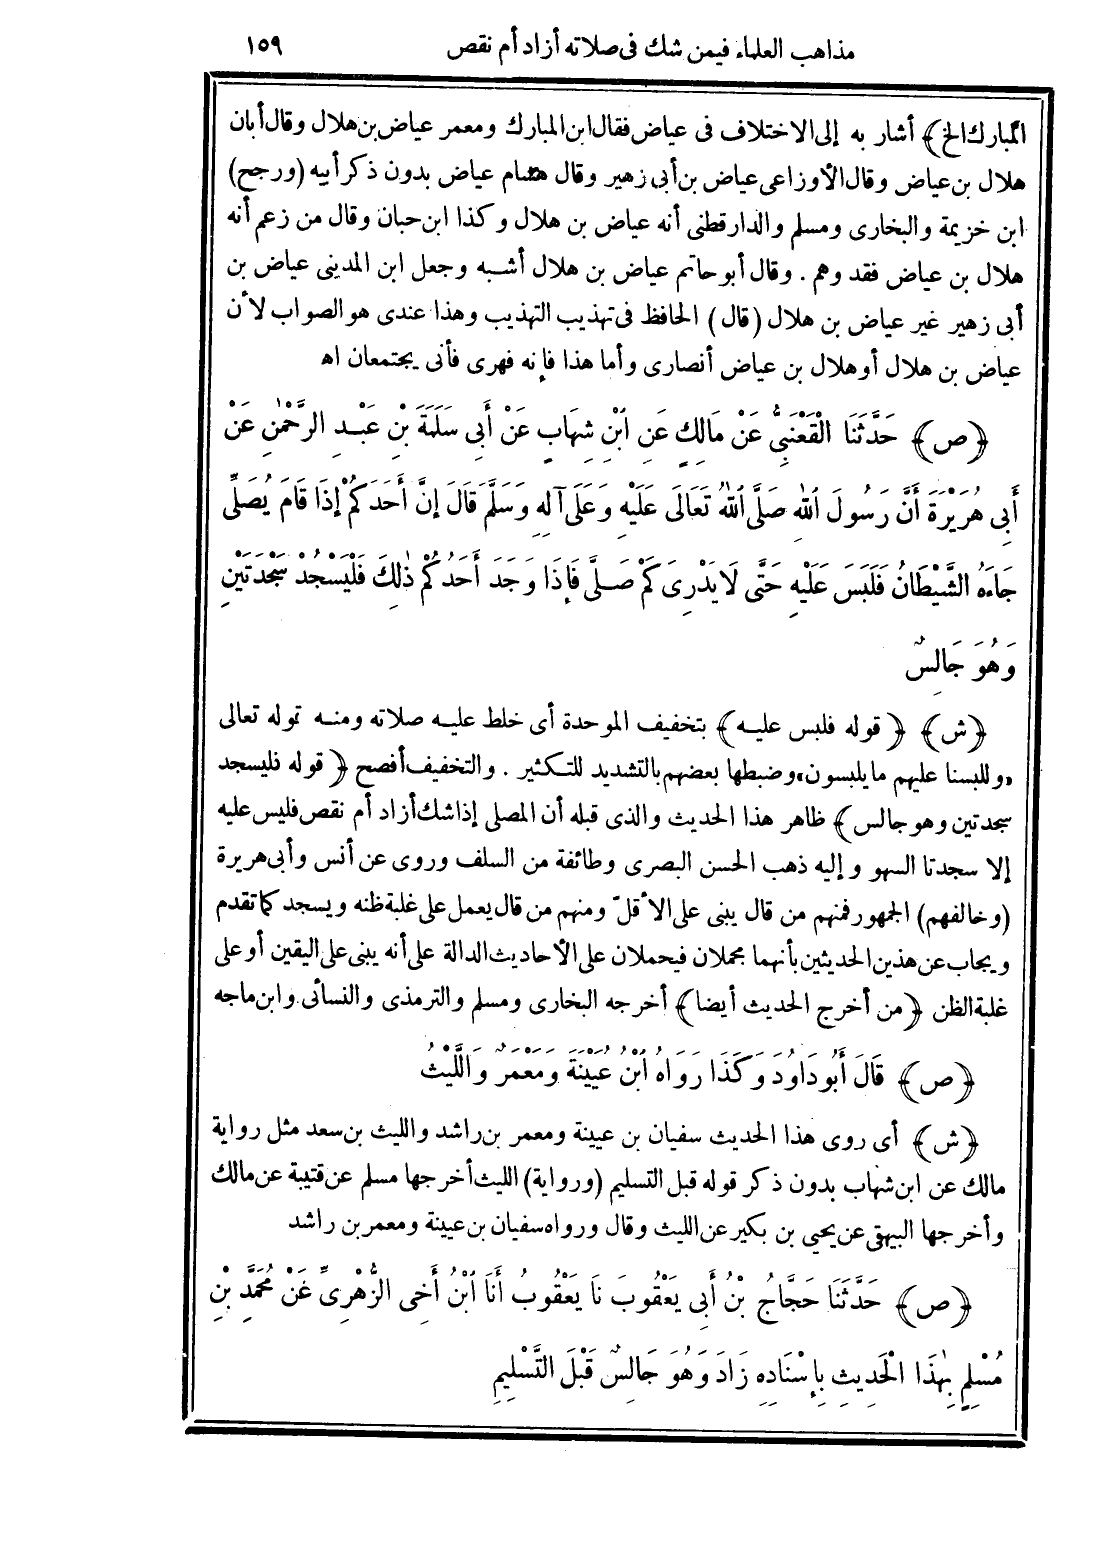 مذاهب العلماء فيمن شك فى صلاته أزاد أم نقص ١٥٩
المبارك الخ﴾ أشار به إلى الاختلاف فى عياض فقال ابن المبارك ومعمر عياض بن هلال وقال أبان
هلال بن عياض وقال الأوزاعى عياض بن أبى زهير وقال هشام عياض بدون ذكر أبيه (ورجح)
ابن خزيمة والبخارى ومسلم والدارقطنى أنه عياض بن هلال وكذا ابن حبان وقال من زعم أنه
هلال بن عياض فقد وهم . وقال أبو حاتم عياض بن هلال أشبه وجعل ابن المدينى عياض بن
أبى زهير غير عياض بن هلال (قال) الحافظ فى تهذيب التهذيب وهذا عندى هو الصواب لأن
عياض بن هلال أو هلال بن عياض أنصارى وأما هذا فإنه فهرى فأنى يجتمعان اه
﴿ص﴾ حَدَّثَنَا الْقَعْنَبِىُّ عَنْ مَالِكٍ عَنِ ابْنِ شِهَابٍ عَنْ أَبِى سَلَمَةَ بْنِ عَبْدِ الرَّحْمٰنِ عَنْ
أَبِى هُرَيْرَةَ أَنَّ رَسُولَ اللهِ صَلَّى اللهُ تَعَالَى عَلَيْهِ وَعَلَى آلِهِ وَسَلَّمَ قَالَ إِنَّ أَحَدَكُمْ إِذَا قَامَ يُصَلِّى
جَاءَهُ الشَّيْطَانُ فَلَبَسَ عَلَيْهِ حَتَّى لَا يَدْرِىَ كَمْ صَلَّى فَإِذَا وَجَدَ أَحَدُكُمْ ذٰلِكَ فَلْيَسْجُدْ سَجْدَتَيْنِ
وَهُوَ جَالِسٌ
﴿ش﴾ ﴿قوله فلبس عليه﴾ بتخفيف الموحدة أى خلط عليه صلاته ومنه قوله تعالى
«وللبسنا عليهم ما يلبسون» وضبطها بعضهم بالتشديد للتكثير . والتخفيف أفصح ﴿قوله فليسجد
سجدتين وهو جالس﴾ ظاهر هذا الحديث والذى قبله أن المصلى إذا شك أزاد أم نقص فليس عليه
إلا سجدتا السهو وإليه ذهب الحسن البصرى وطائفة من السلف وروى عن أنس وأبى هريرة
(وخالفهم) الجمهور فمنهم من قال يبنى على الأقلّ ومنهم من قال يعمل على غلبة ظنه ويسجد كما تقدم
ويجاب عن هذين الحديثين بأنهما مجملان فيحملان على الأحاديث الدالة على أنه يبنى على اليقين أو على
غلبة الظن ﴿من أخرج الحديث أيضا﴾ أخرجه البخارى ومسلم والترمذى والنسائى وابن ماجه
﴿ص﴾ قَالَ أَبُو دَاوُدَ وَكَذَا رَوَاهُ ابْنُ عُيَيْنَةَ وَمَعْمَرٌ وَاللَّيْثُ
﴿ش﴾ أى روى هذا الحديث سفيان بن عيينة ومعمر بن راشد والليث بن سعد مثل رواية
مالك عن ابن شهاب بدون ذكر قوله قبل التسليم (ورواية) الليث أخرجها مسلم عن قتيبة عن مالك
وأخرجها البيهقى عن يحيى بن بكير عن الليث وقال ورواه سفيان بن عيينة ومعمر بن راشد
﴿ص﴾ حَدَّثَنَا حَجَّاجُ بْنُ أَبِى يَعْقُوبَ نَا يَعْقُوبُ أَنَا ابْنُ أَخِى الزُّهْرِىِّ عَنْ مُحَمَّدِ بْنِ
مُسْلِمٍ بِهٰذَا الْحَدِيثِ بِإِسْنَادِهِ زَادَ وَهُوَ جَالِسٌ قَبْلَ التَّسْلِيمِ